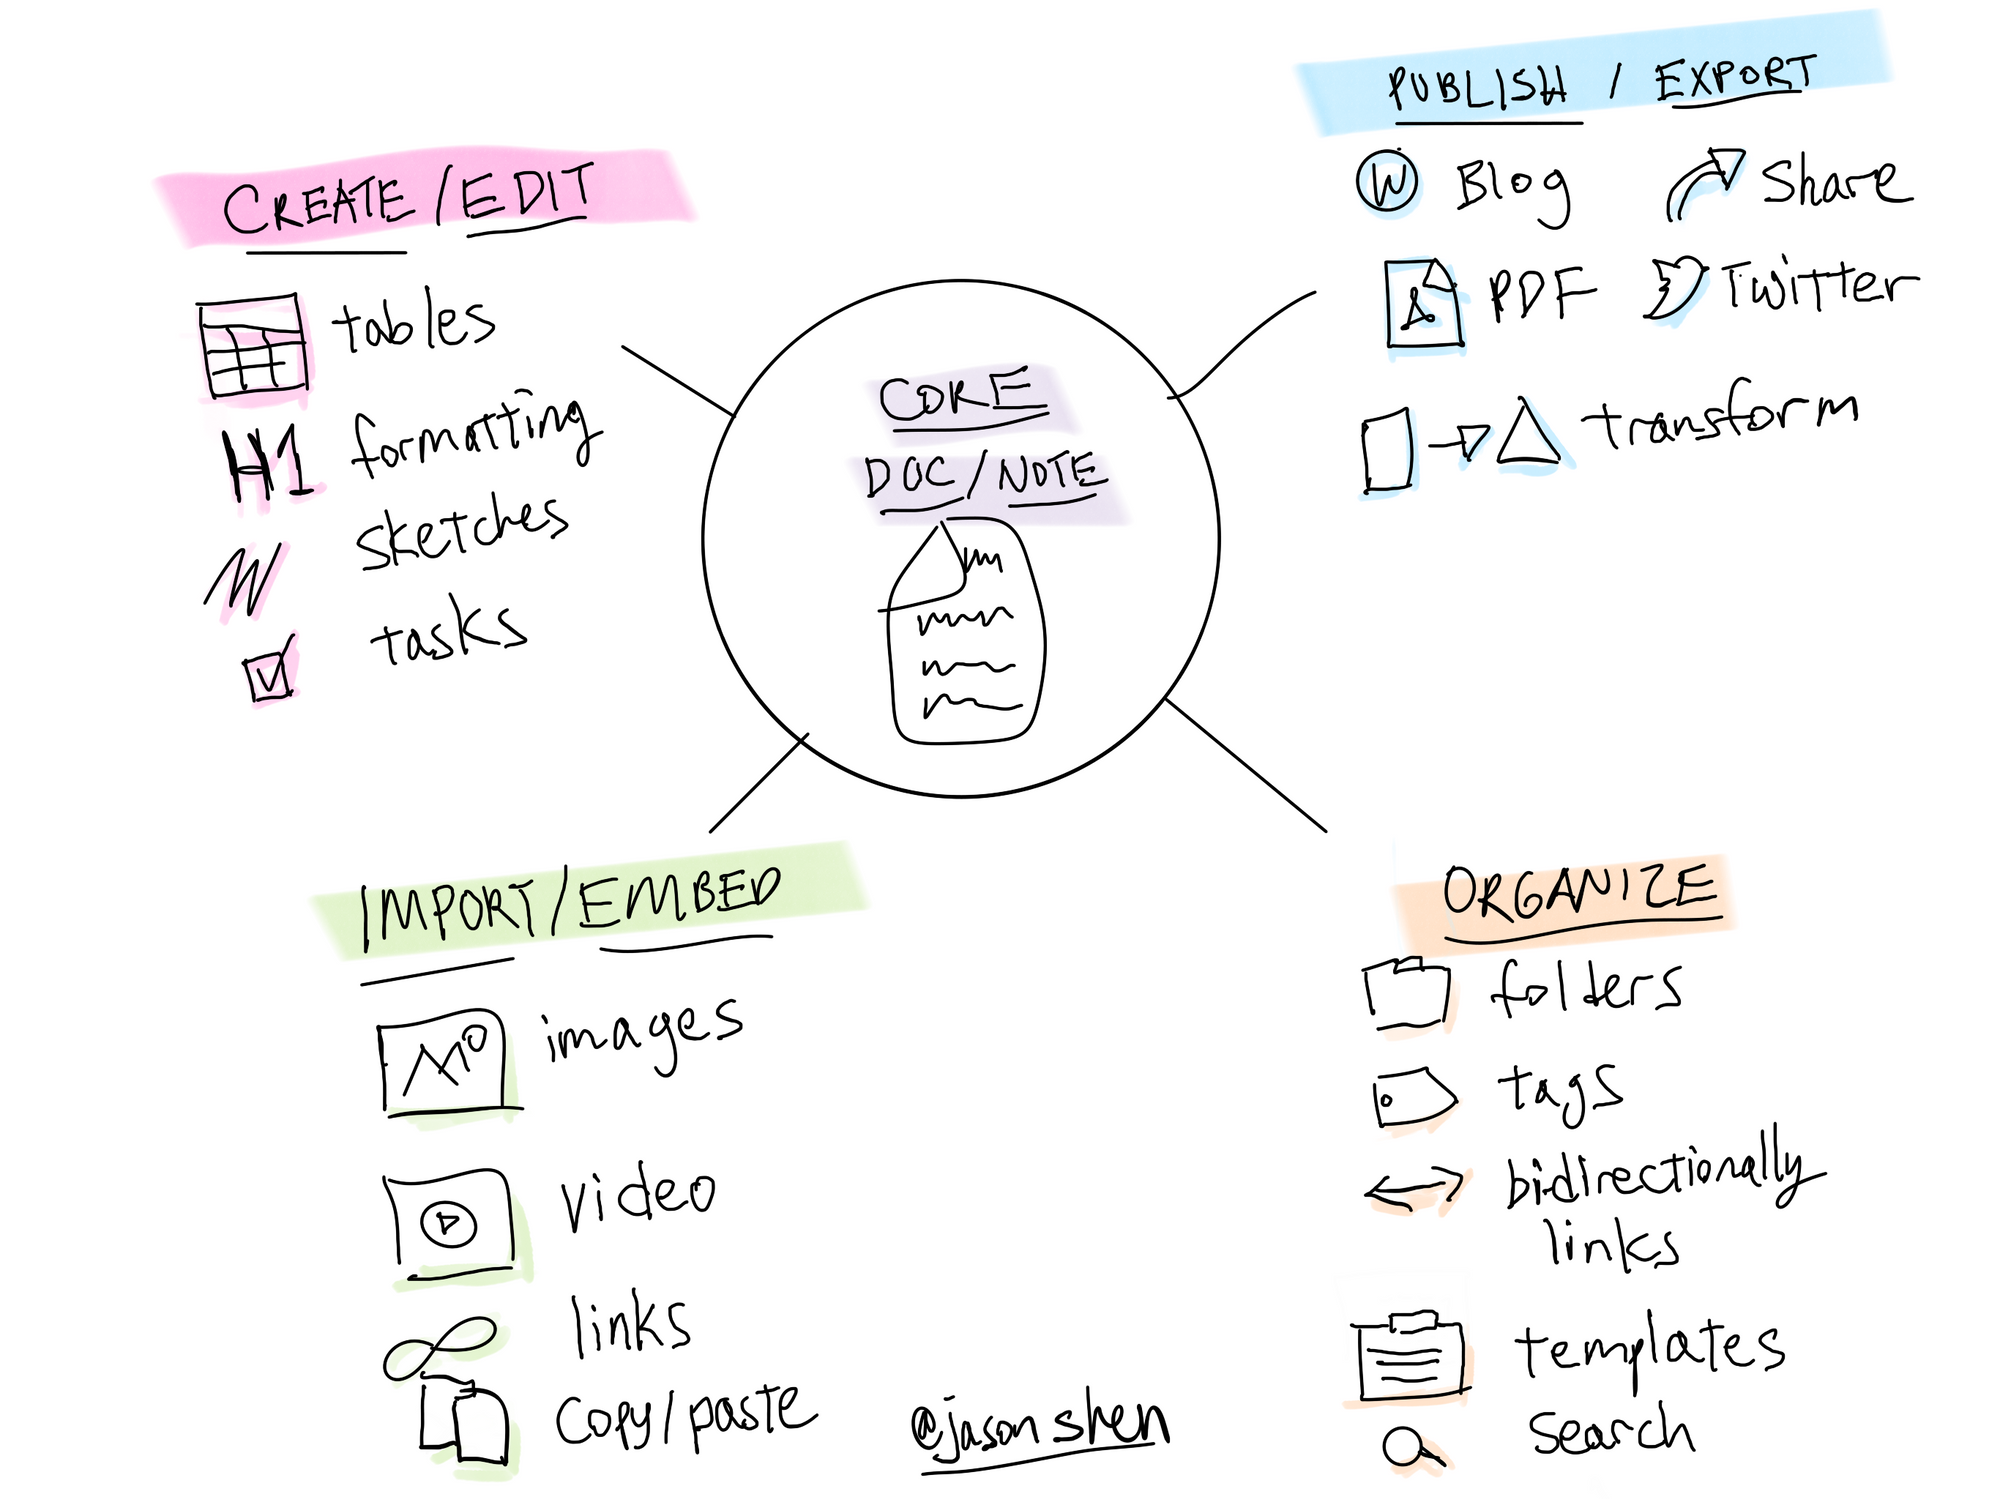 CREATE / EDIT
tables
H1 formatting
sketches
tasks
CORE
DOC / NOTE
PUBLISH / EXPORT
W Blog
Share
PDF
Twitter
transform
IMPORT / EMBED
images
video
links
Copy/paste
@jasonshen
ORGANIZE
folders
tags
bidirectionally
links
templates
Search